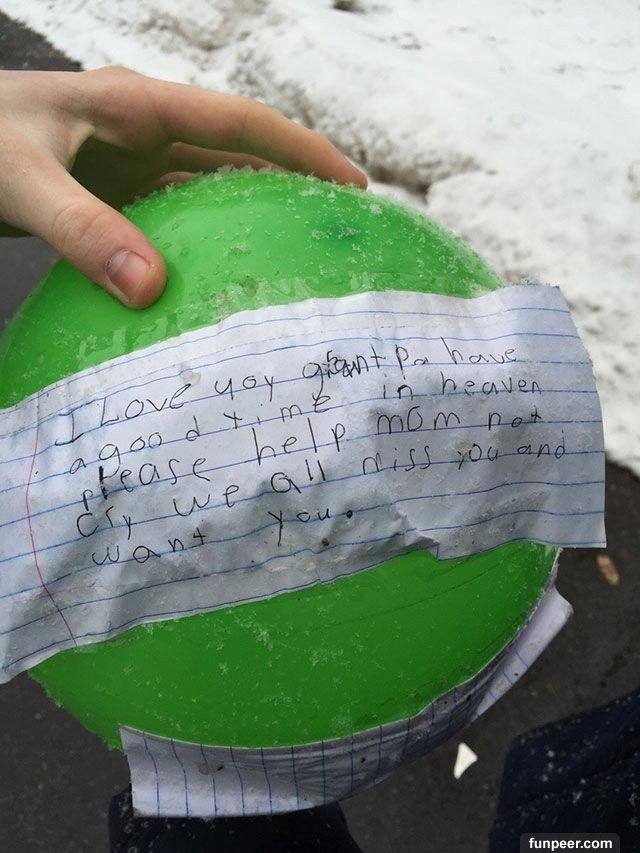 I Love yoy grantpa have
a good time in heaven
please help mom not
cry we all miss you and
want you.
funpeer.com